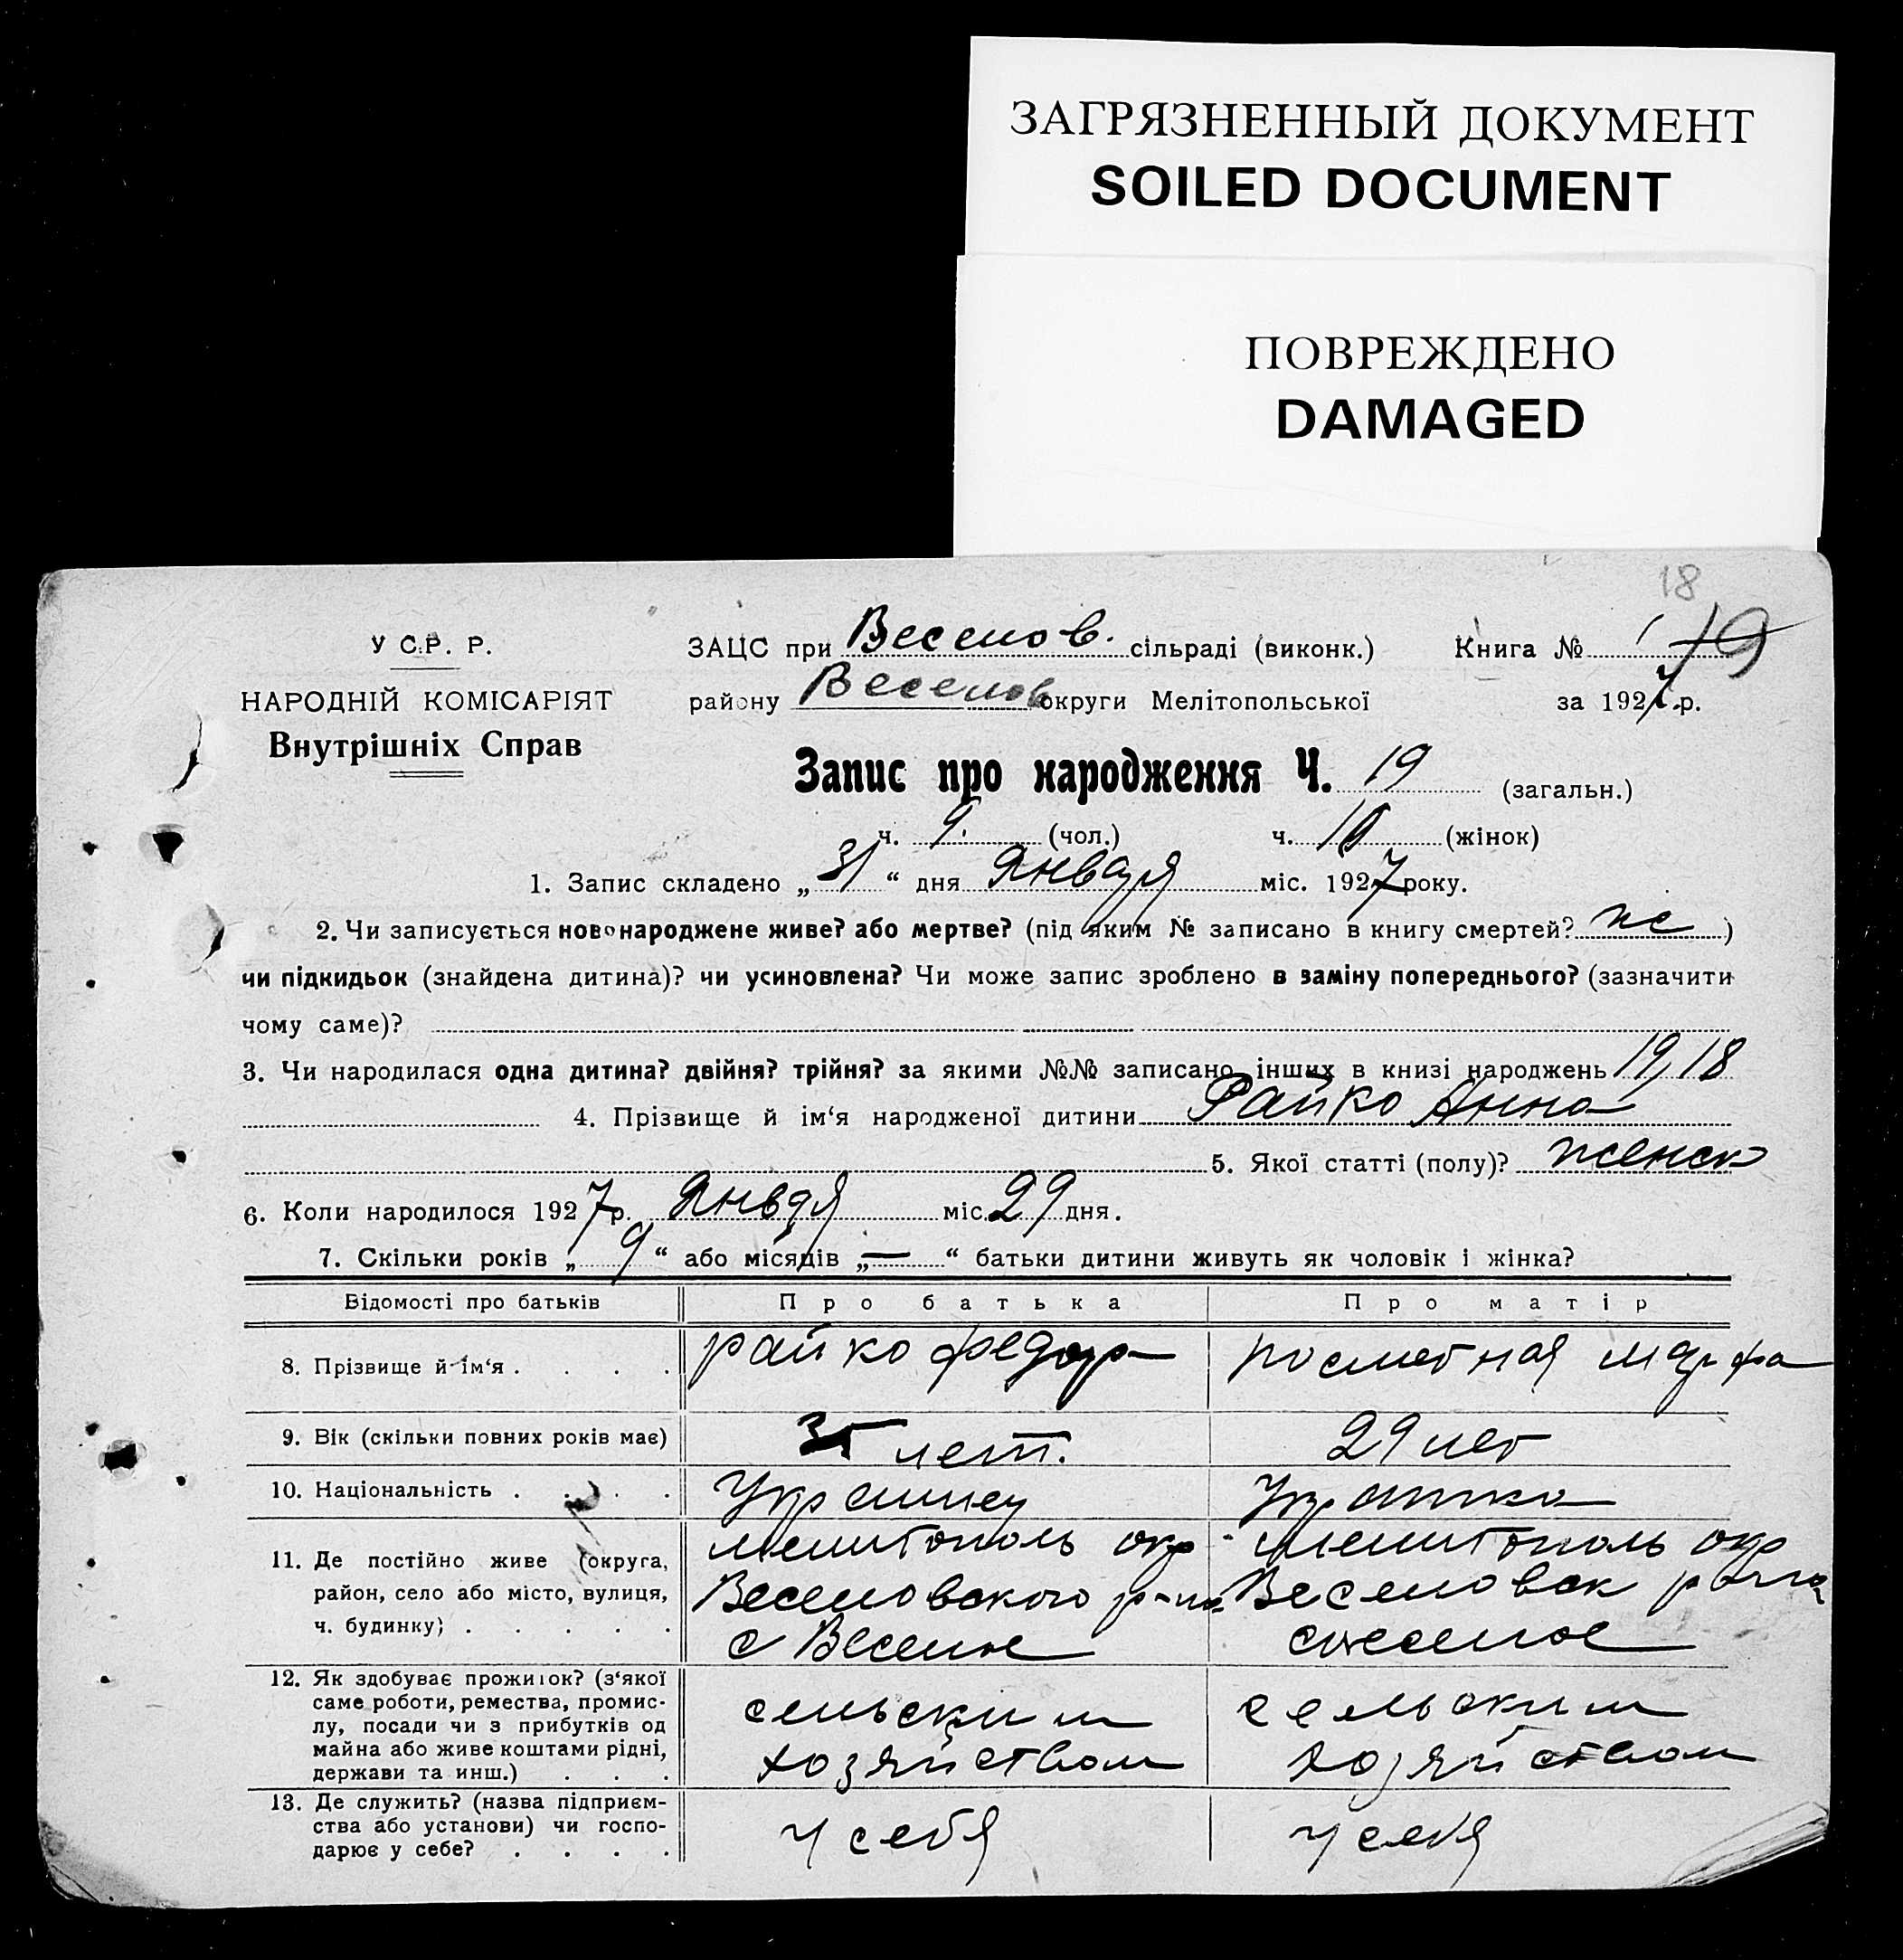 ЗАГРЯЗНЕННЫЙ ДОКУМЕНТ
SOILED DOCUMENT
ПОВРЕЖДЕНО
DAMAGED
18
У С.Р. Р.
ЗАЦС при Веселов. сільраді (виконк.) Книга № 1 19
НАРОДНІЙ КОМІСАРІЯТ
району Веселов округи Мелітопольської за 1927 р.
Внутрішніх Справ
Запис про народження Ч. 19 (загальн.)
ч. 9. (чол.) ч. 10 (жінок)
1. Запис складено „ 31 “ дня Января міс. 1927 року.
2. Чи записується новонароджене живе? або мертве? (під яким № записано в книгу смертей? )
чи підкидьок (знайдена дитина)? чи усиновлена? Чи може запис зроблено в заміну попереднього? (зазначити
чому саме)?
3. Чи народилася одна дитина? двійня? трійня? за якими №№ записано інших в книзі народжень 19, 18
4. Прізвище й ім‘я народженої дитини Райко Анна
5. Якої статті (полу)? женск
6. Коли народилося 1927 р. Января міс. 29 дня.
7. Скільки років „ 9 “ або місяців „ — “ батьки дитини живуть як чоловік і жінка?
Відомості про батьків Про батька Про матір
8. Прізвище й ім‘я . . . . Райко Федор Марфа
9. Вік (скільки повних років має) 35 лет. 29 лет
10. Національність . . . . Украинец Украинка
11. Де постійно живе (округа, Мелитополь окр Мелитополь окр
район, село або місто, вулиця, Веселовского р-на Веселовск р-на
ч. будинку) . . . . . с Веселое с Веселое
12. Як здобуває прожиток? (з‘якої
саме роботи, ремества, промис-
лу, посади чи з прибутків од сельским сельским
майна або живе коштами рідні, хозяйством хозяйством
держави та инш.) . . .
13. Де служить? (назва підприєм-
ства або установи) чи госпо- у себя у себя
дарює у себе? . . . .